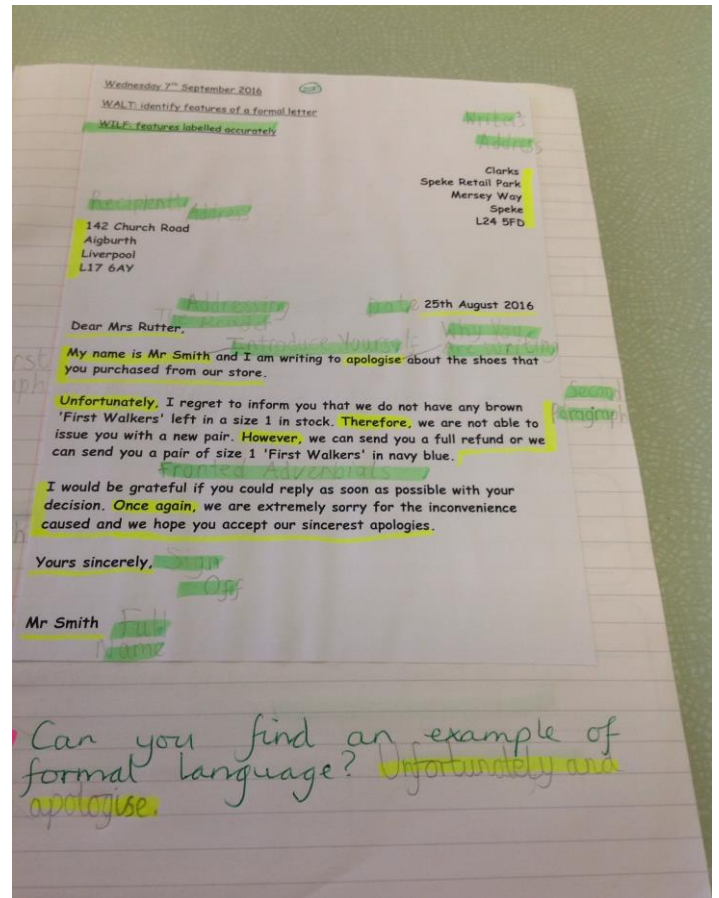 Wednesday 7th September 2016
WALT: identify features of a formal letter
WILF: features labelled accurately
Writer's
Address
Clarks
Speke Retail Park
Mersey Way
Speke
L24 5FD
Recipient's
Address
142 Church Road
Aigburth
Liverpool
L17 6AY
Addressing
The Reader
Date
25th August 2016
Dear Mrs Rutter,
Introduce Yourself
Why You
Are Writing
My name is Mr Smith and I am writing to apologise about the shoes that
you purchased from our store.
Unfortunately, I regret to inform you that we do not have any brown
'First Walkers' left in a size 1 in stock. Therefore, we are not able to
issue you with a new pair. However, we can send you a full refund or we
can send you a pair of size 1 'First Walkers' in navy blue.
Second
Paragraph
Fronted Adverbials
I would be grateful if you could reply as soon as possible with your
decision. Once again, we are extremely sorry for the inconvenience
caused and we hope you accept our sincerest apologies.
Yours sincerely,
Sign
Off
Mr Smith
Full
Name
Can you find an example of
formal language? Unfortunately and
apologise.